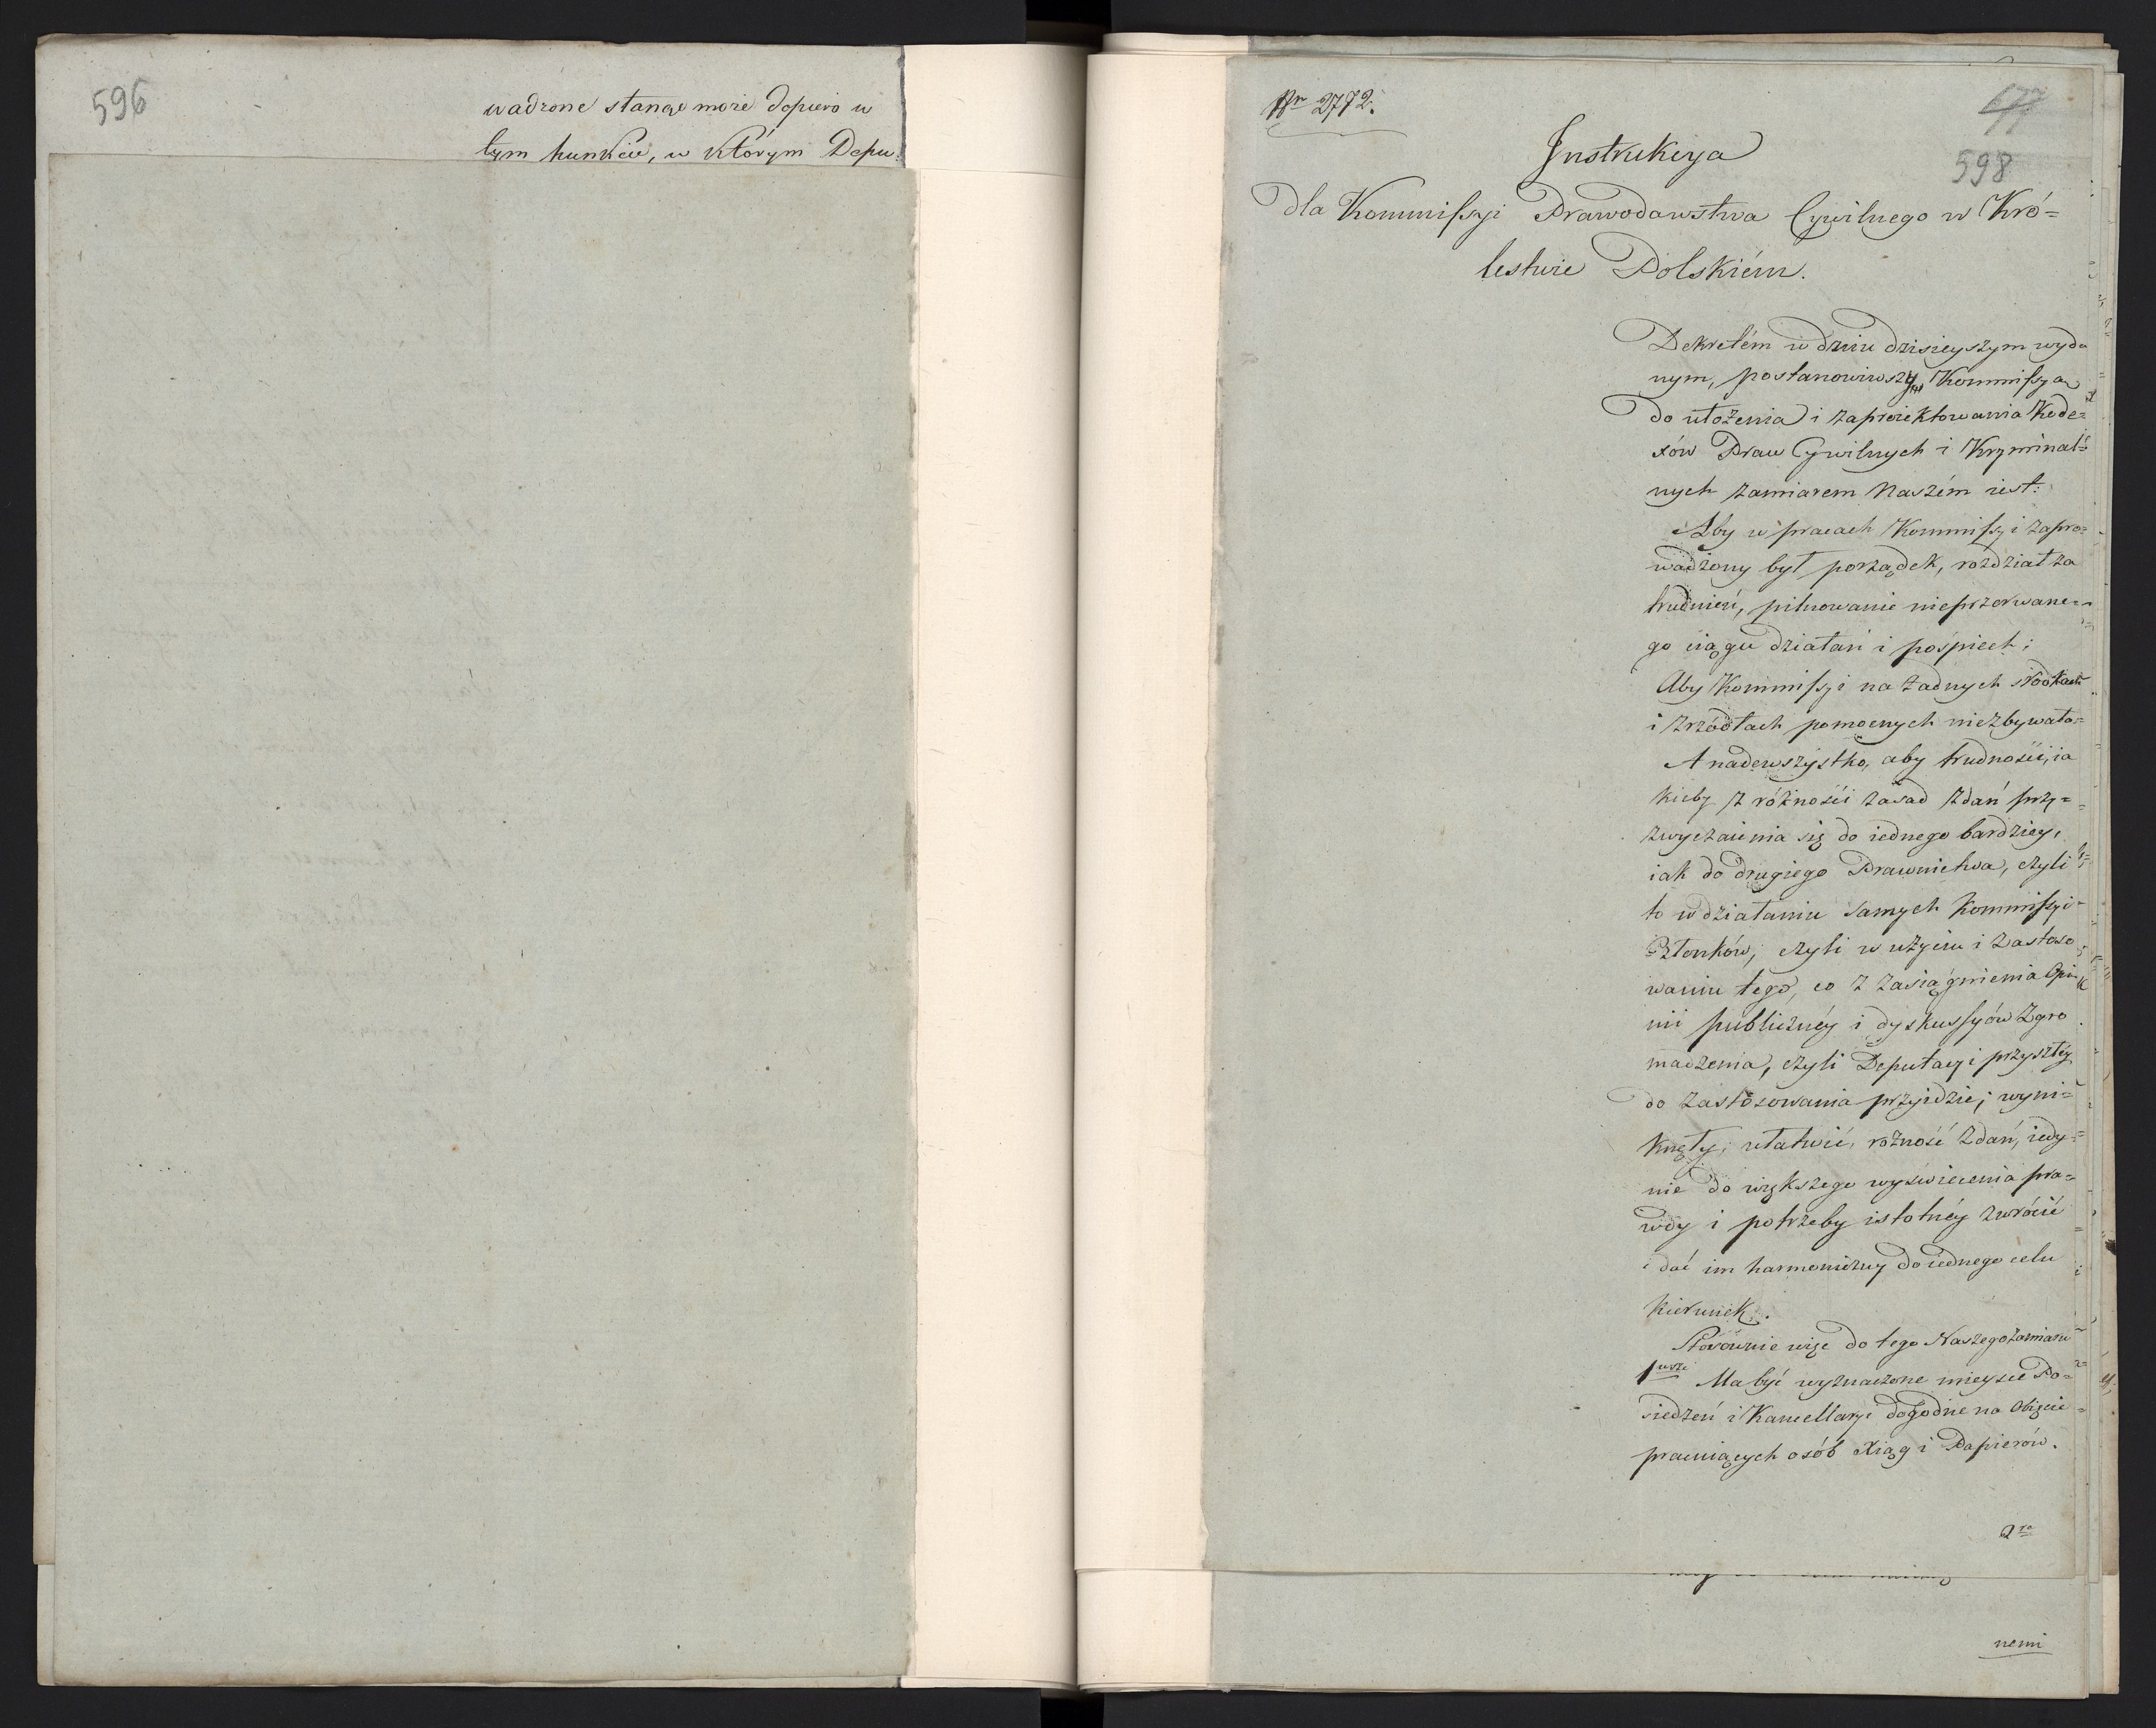 596
wadzone stanąć może dopiero w
tym punkcie, w którym Depu:
Nr 2772.
677
598
Instrukcya
dla Kommissyi Prawodawstwa Cywilnego w Kró=
lestwie Polskiém.
Dekretém w dniu dzisieyszym wyda
nym, postanowiwszy Kommissyą
do ułożenia i zaproiektowania Kode=
xów Praw Cywilnych i Kryminal=
nych zamiarem Naszém iest:
Aby w pracach Kommissyi zapro=
wadzony był porządek, rozdział za
trudnień, pilnowanie nieprzerwane=
go ciągu działań i pośpiech;
Aby Kommissyi na żadnych środkach
i zrzódłach pomocnych niezbywało=
A nadewszystko, aby trudności, ia
kieby z różności zasad zdań przy=
zwyczaienia się do iednego bardziey,
iak do drugiego Prawnictwa, czyli
to w działaniu samych Kommissyi
Członków, czyli w użyciu i zastoso
waniu tego, co z zasiągnienia Opi
nii publicznéy i dyskussyów Zgro
madzenia, czyli Deputacyi przyszłéy
do zastosowania przyidzie; wyni=
knęły; ułatwić, rożność zdań, iedy=
nie do większego wyświecenia pra=
wdy i potrzeby istotnéy zwrócić
i dać im harmoniczny do iednego celu
kierunek.
Stosownie więc do tego Naszego zamiaru
1wsze Ma być wyznaczone mieysce Po=
siedzeń i Kancellaryi dogodne na Obięcie
pracuiących osób Xiąg i Papierów.
2re
nemi